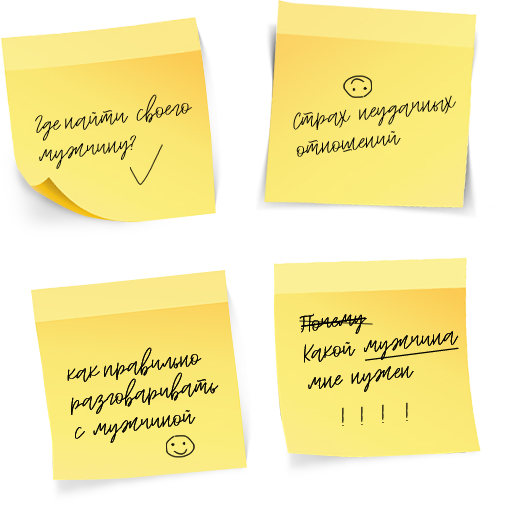 Где найти своего
мужчину?
Страх неудачных
отношений
как правильно
разговаривать
с мужчиной
Почему
Какой мужчина
мне нужен
! ! ! !